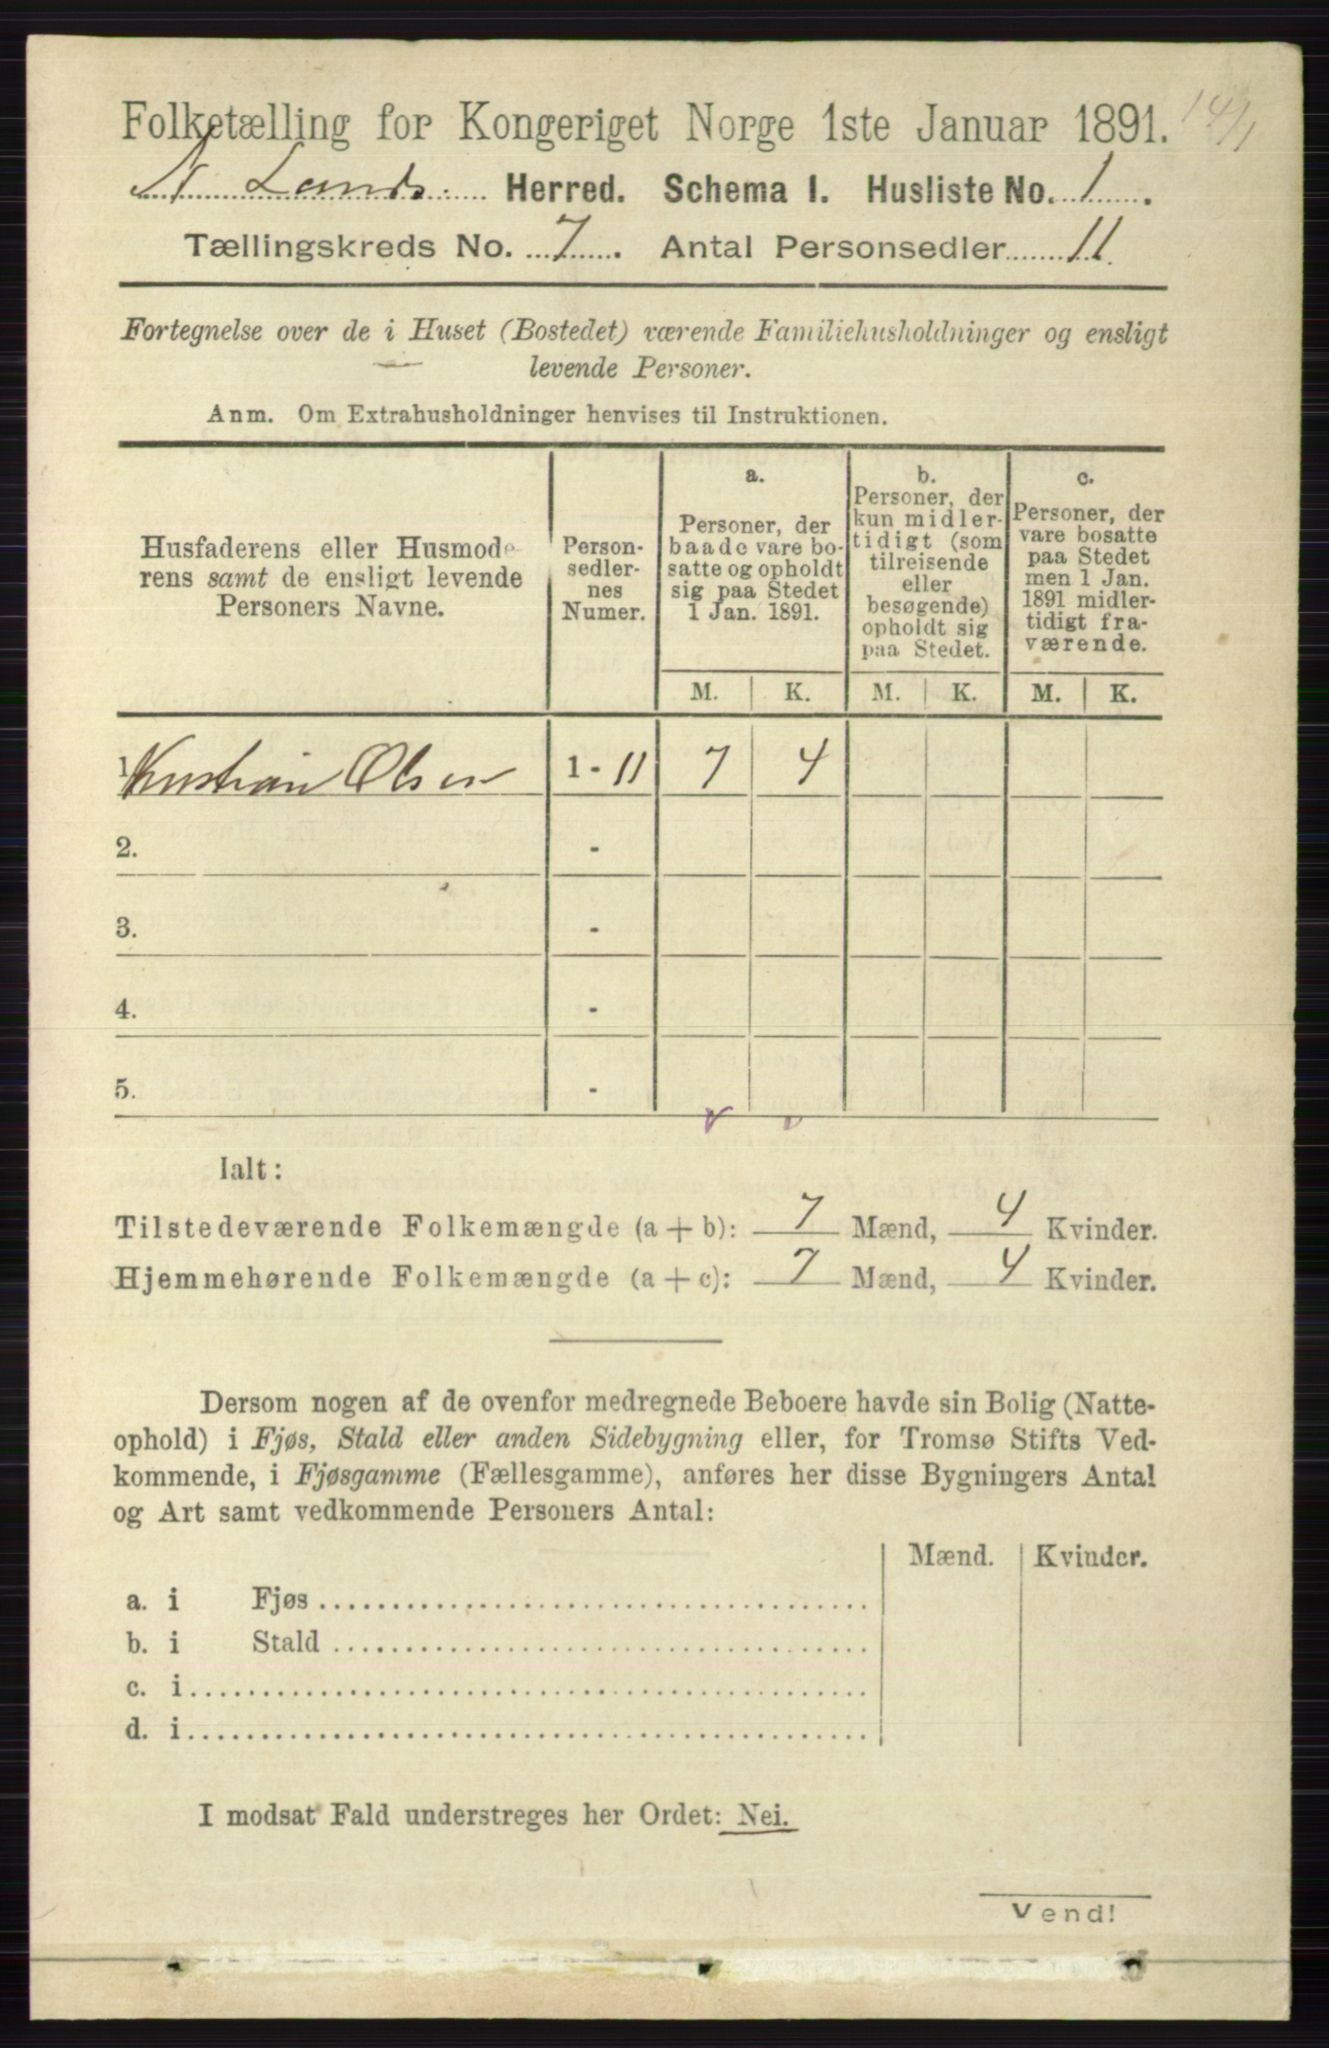 14/1
Folketælling for Kongeriget Norge 1ste Januar 1891.
N. Lands Herred. Schema I. Husliste No. 1.
Tællingskreds No. 7. Antal Personsedler 11
Fortegnelse over de i Huset (Bostedet) værende Familiehusholdninger og ensligt
levende Personer.
Anm. Om Extrahusholdninger henvises til Instruktionen.
Husfaderens eller Husmode-
rens samt de ensligt levende
Personers Navne.
Person-
sedler-
nes
Numer.
a.
Personer, der
baade vare bo-
satte og opholdt
sig paa Stedet
1 Jan. 1891.
b.
Personer, der
kun midler-
tidigt (som
tilreisende
eller
besøgende)
opholdt sig
paa Stedet.
c.
Personer, der
vare bosatte
paa Stedet
men 1 Jan.
1891 midler-
tidigt fra-
værende.
M. K. M. K. M. K.
1. Kristian Olsen 1 - 11 7 4
2. -
3. -
4. -
5. -
Ialt:
Tilstedeværende Folkemængde (a + b): 7 Mænd, 4 Kvinder.
Hjemmehørende Folkemængde (a + c): 7 Mænd, 4 Kvinder.
Dersom nogen af de ovenfor medregnede Beboere havde sin Bolig (Natte-
ophold) i Fjøs, Stald eller anden Sidebygning eller, for Tromsø Stifts Ved-
kommende, i Fjøsgamme (Fællesgamme), anføres her disse Bygningers Antal
og Art samt vedkommende Personers Antal:
Mænd. Kvinder.
a. i Fjøs
b. i Stald
c. i
d. i
I modsat Fald understreges her Ordet: Nei.
Vend!